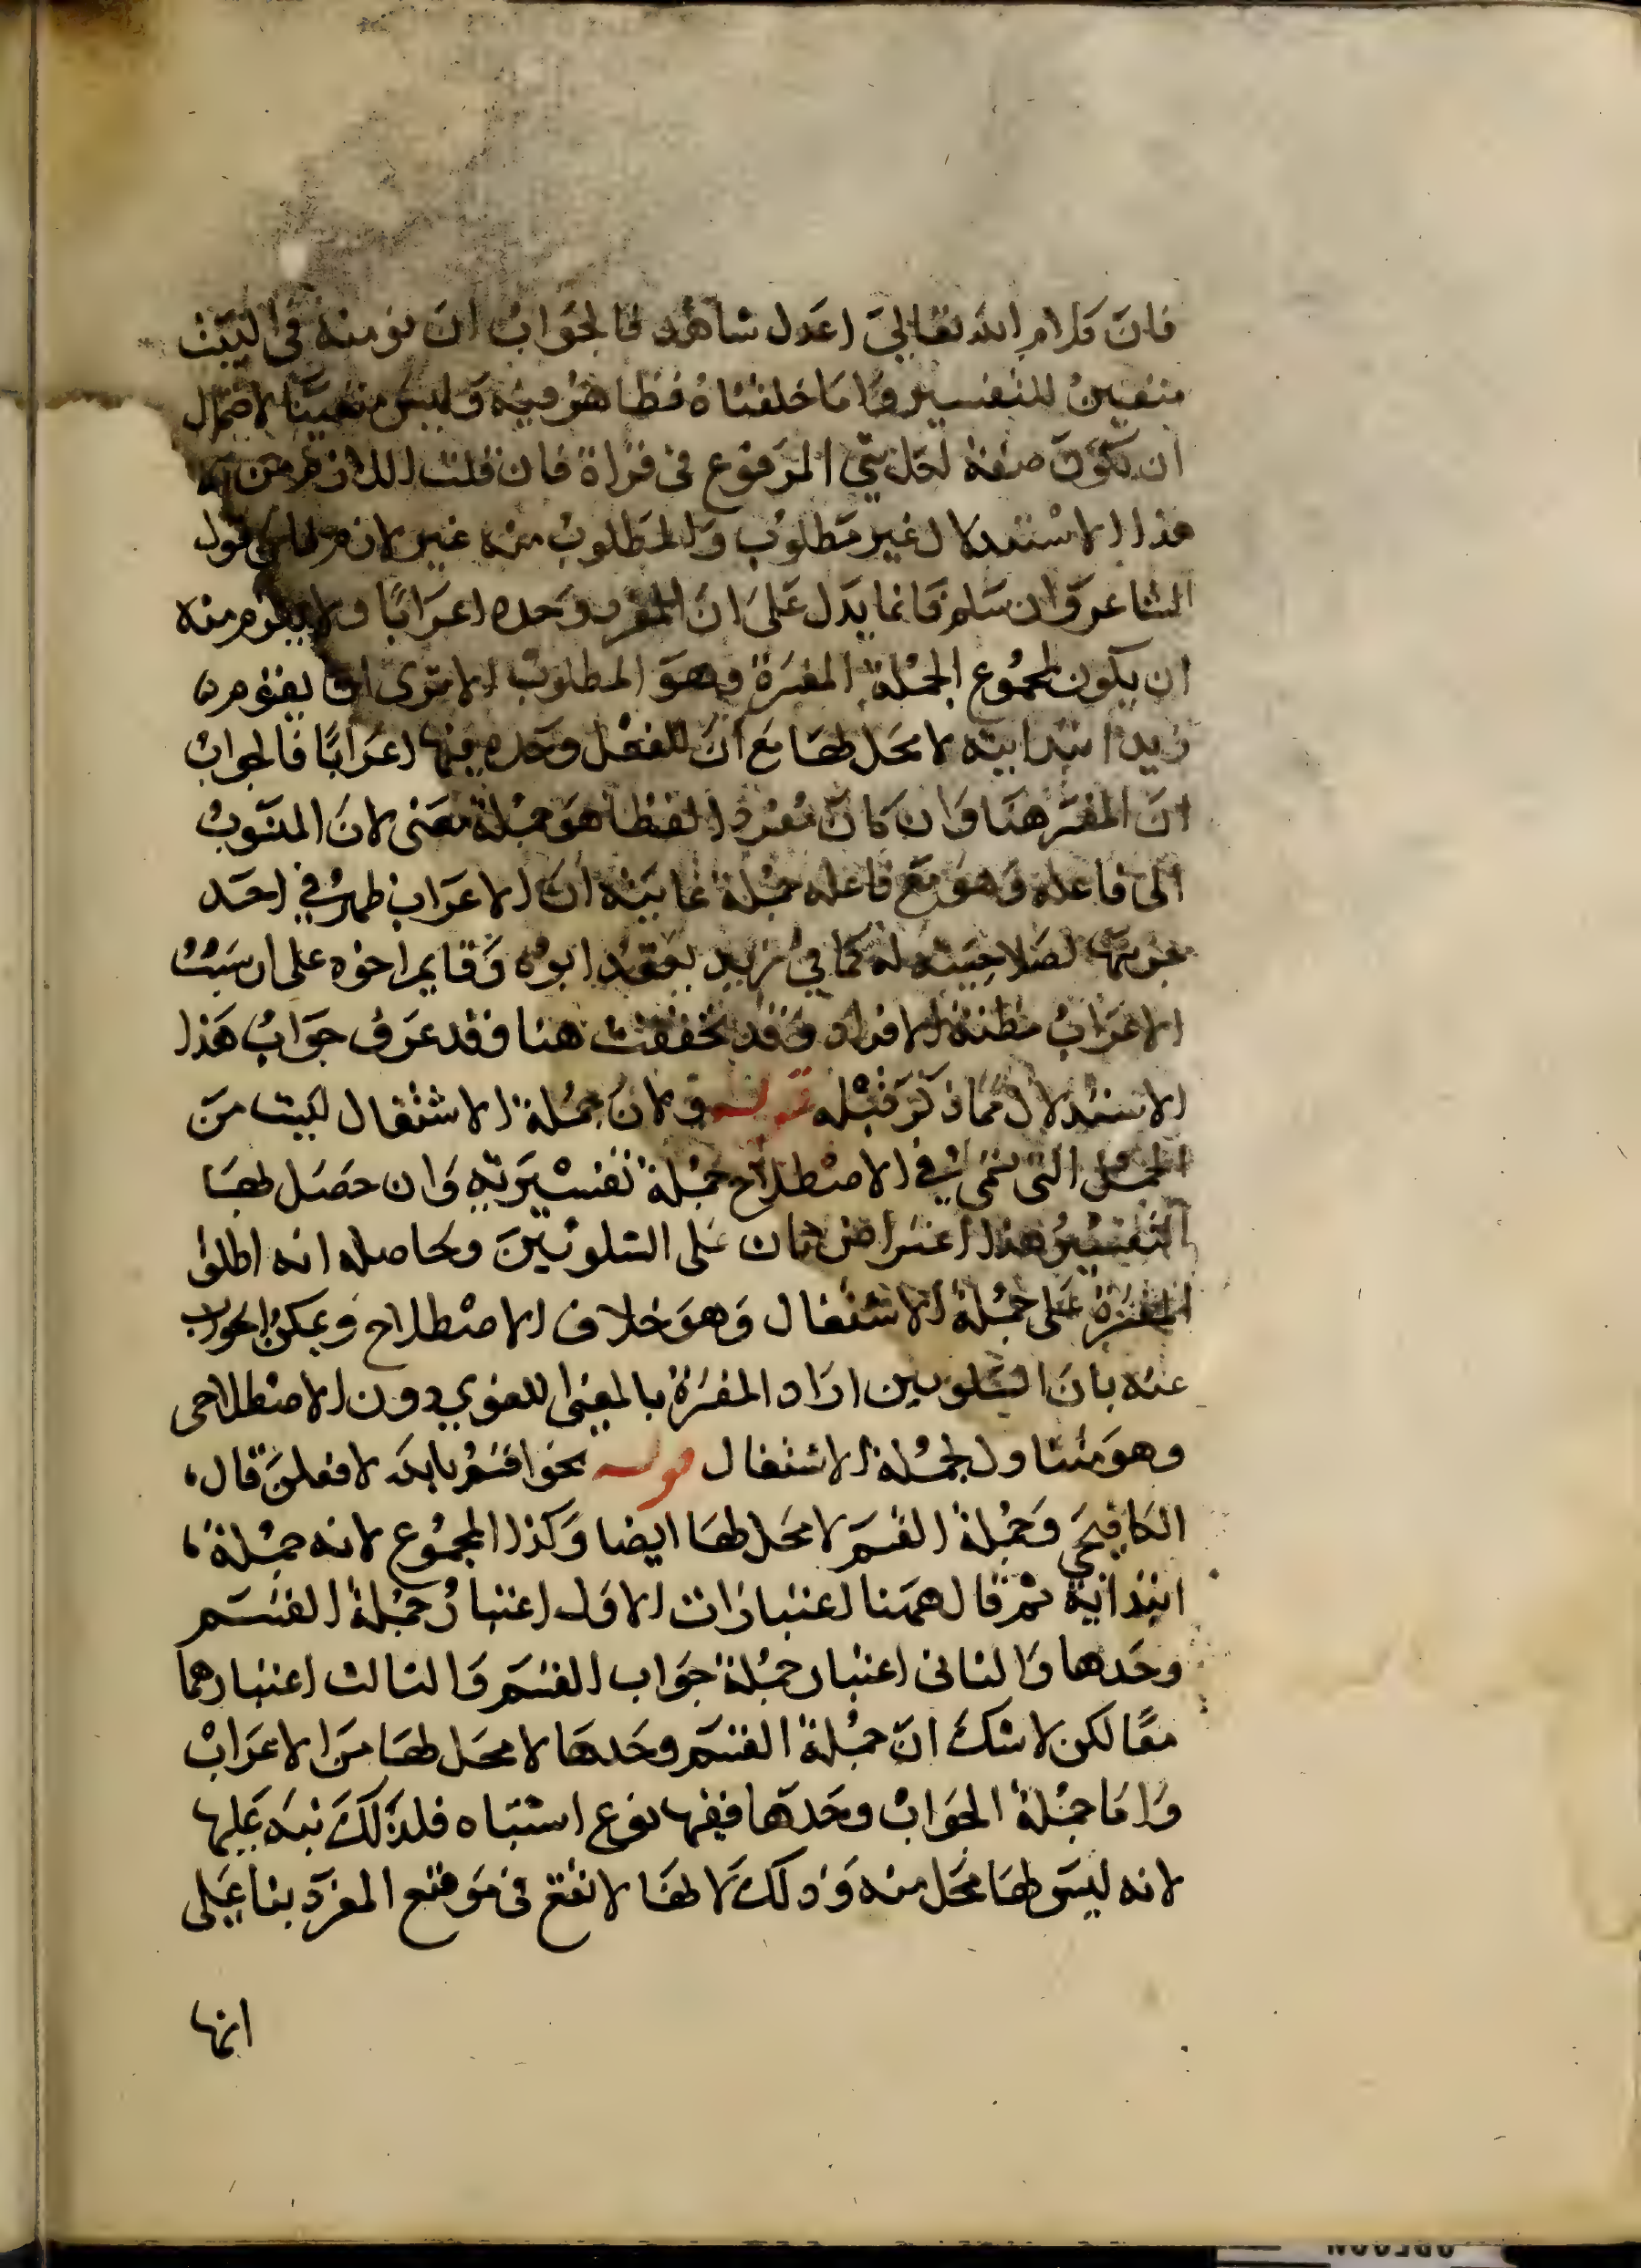 فان كلام الله تعالى اعدل شاهد فالجواب ان نومنه في البيت
متعين للتفسير واما خلقناه فظاهر فيه وليس متعينا لاحتمال
ان تكون صفة لحل شي المرفوع في قراة فان قلت اللازم من
هذا الاستدلال غير مطلوب والمطلوب منه غير لازم قول
الشاعر وان سلم فانما يدل على ان المفرد وحده اعرابا ولا يلزم منه
ان يكون لمجموع الجملة المفسرة وهو المطلوب الا ترى ان يقوم من
زيد ابتدايية لا محل لها مع ان للفعل وحده فيها اعرابا فالجواب
ان المفسر هنا وان كان مفردا لفظا هو جملة معنى لان المنسوب
الى فاعله وهو مع فاعله جملة غايته ان الاعراب ظهر في احد
جزئيها لصلاحيته له كما في زيد يعقد ابوه وقايم اخوه على ان سبب
الاعراب مظنة الافراد وقد تحققت هنا وقد عرف جواب هذا
الاستدلال مما ذكر قبله قوله ولان جملة الاشتغال ليست من
الجمل التي تسمى في الاصطلاح جملة تفسيرية وان حصل لها
التفسير هذا اعتراض ثان على الشلوبين وحاصله انه اطلق
المفسرة على جملة الاشتغال وهو خلاف الاصطلاح ويمكن الجواب
عنه بان الشلوبين اراد المفسرة بالمعنى اللغوي دون الاصطلاحي
وهو متناول لجملة الاشتغال قوله نحو اقسم بالله لافعلن قال
الكافيجي وجملة القسم لا محل لها ايضا وكذا المجموع لانه جملة
ابتدائية ثم قال ههنا اعتبارات الاول اعتبار جملة القسم
وحدها والثاني اعتبار جملة جواب القسم والثالث اعتبارهما
معا لكن لا شك ان جملة القسم وحدها لا محل لها من الاعراب
واما جملة الجواب وحدها ففيها نوع اشتباه فلذلك نبه عليها
لانه ليس لها محل منه وذلك لانها لا تقع في موقع المفرد بناء على
انها